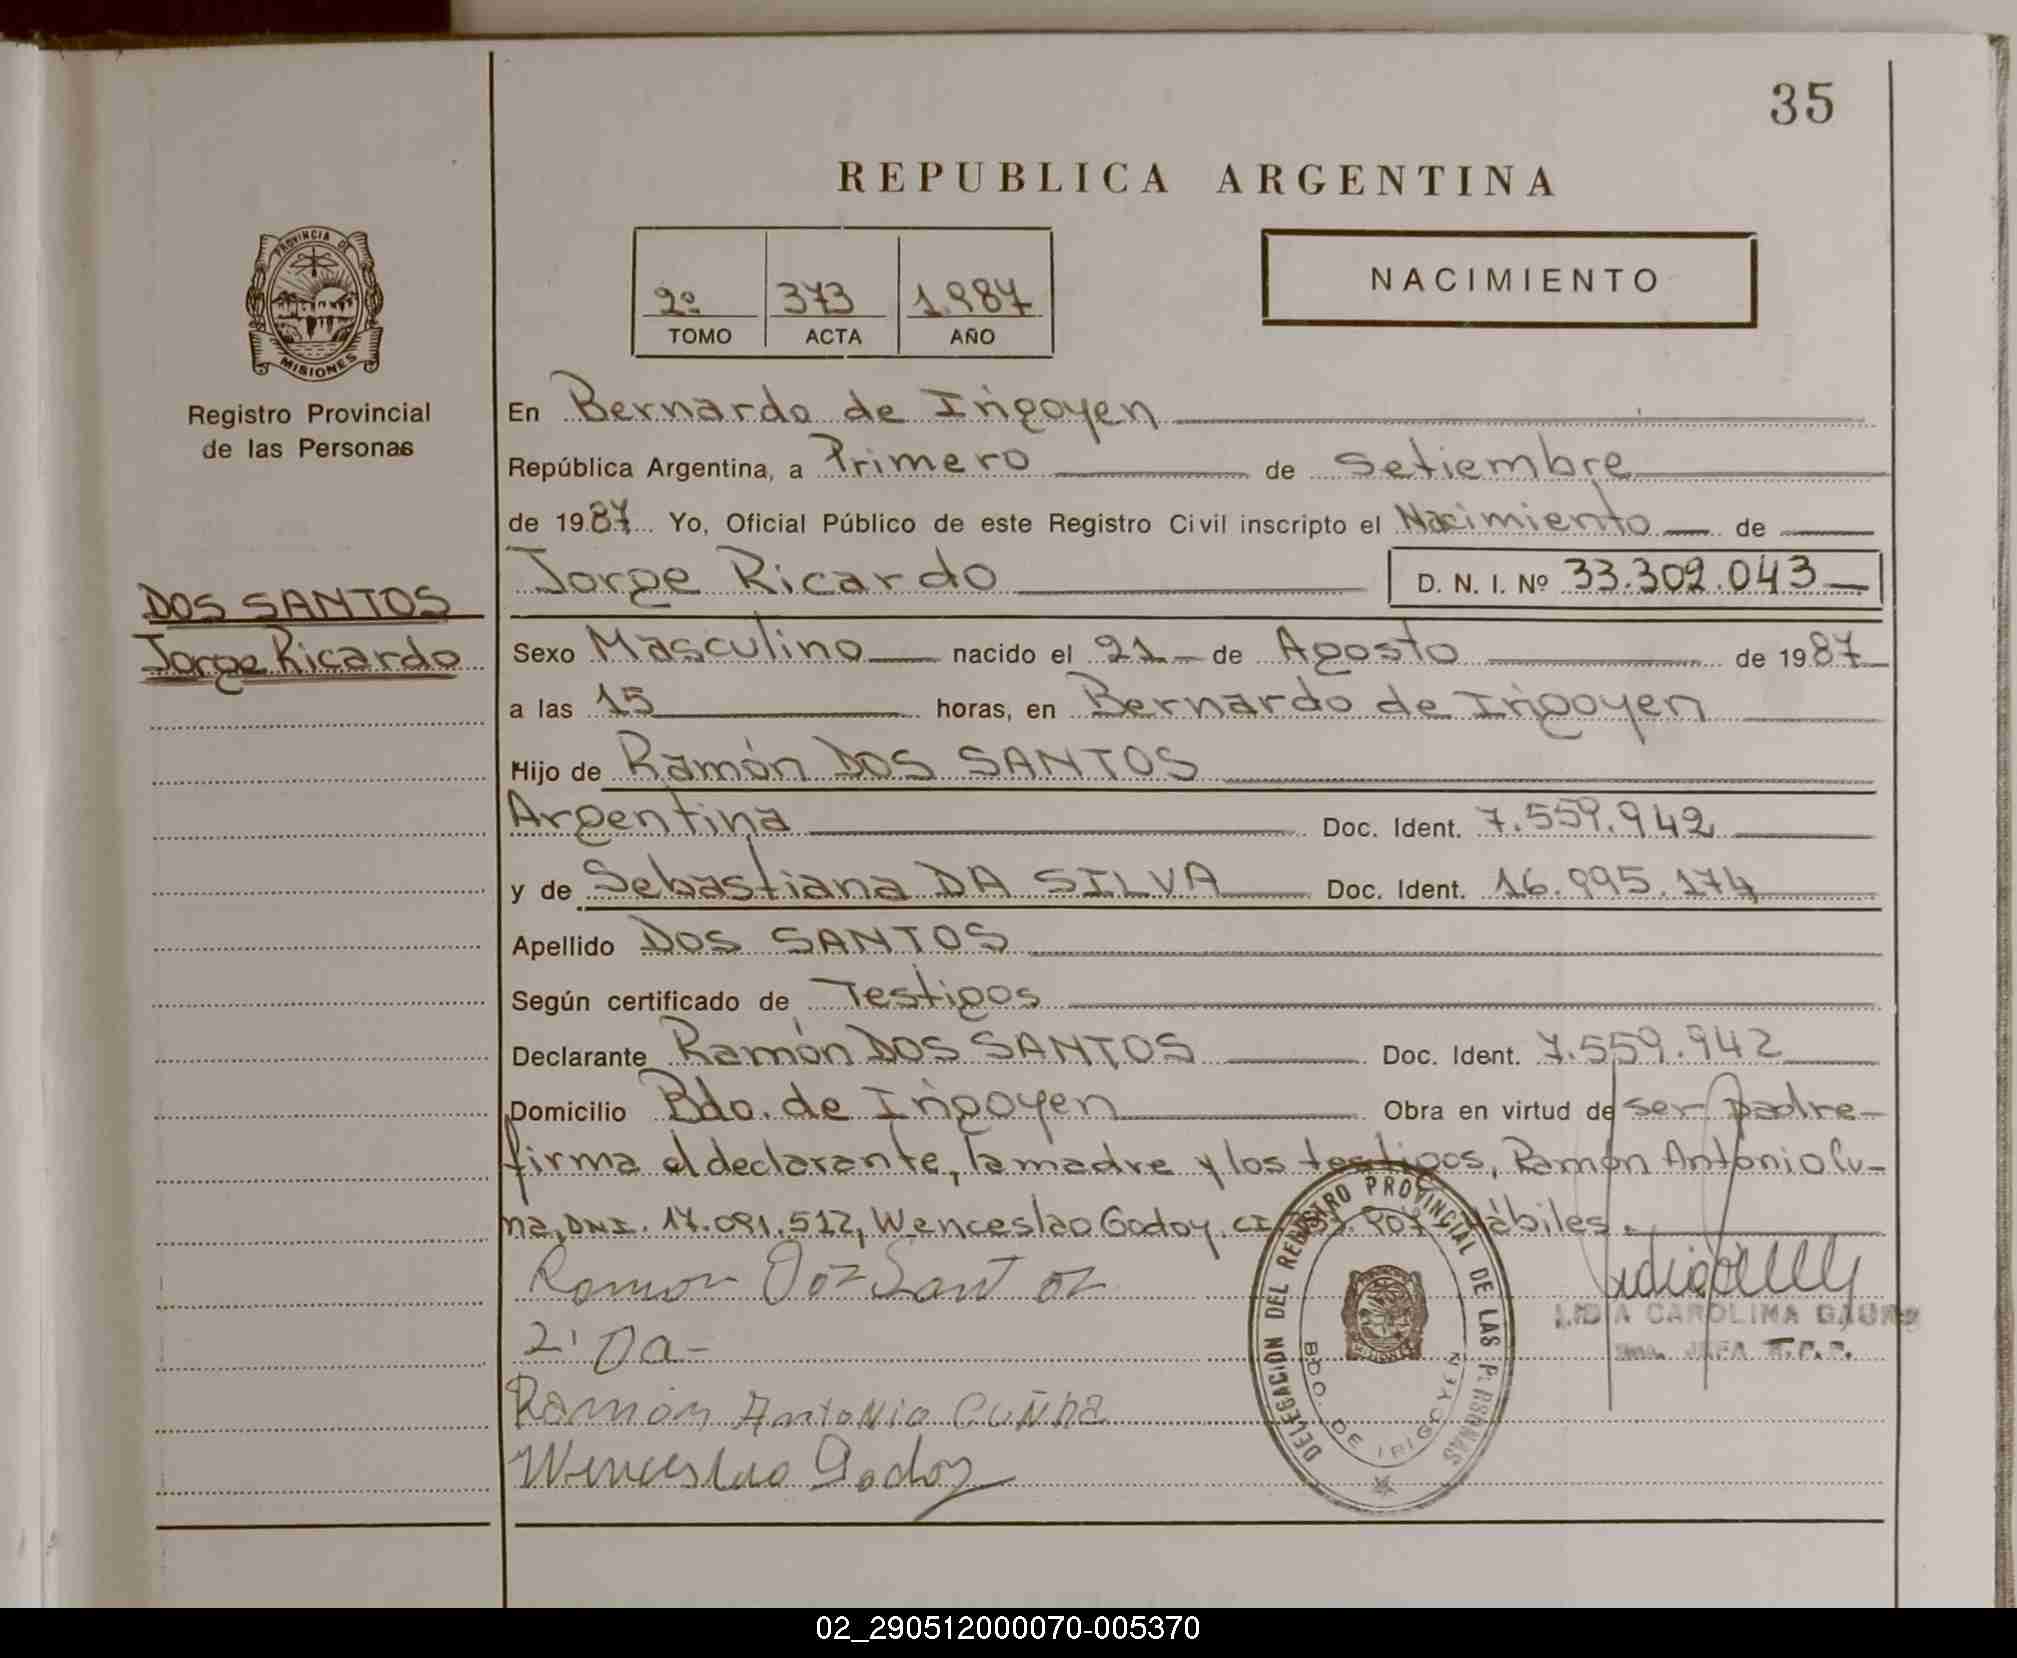 35
REPUBLICA ARGENTINA
2º 373 1.987
TOMO ACTA AÑO
NACIMIENTO
PROVINCIA DE
MISIONES
Registro Provincial
de las Personas
DOS SANTOS
Jorge Ricardo
En Bernardo de Irigoyen
República Argentina, a Primero de Setiembre
de 1987 Yo, Oficial Público de este Registro Civil inscripto el Nacimiento de
Jorge Ricardo D. N. I. Nº 33.302.043
Sexo Masculino nacido el 21 de Agosto de 1987
a las 15 horas, en Bernardo de Irigoyen
Hijo de Ramón DOS SANTOS
Argentina Doc. Ident. 7.559.942
y de Sebastiana DA SILVA Doc. Ident. 16.995.174
Apellido DOS SANTOS
Según certificado de Testigos
Declarante Ramón DOS SANTOS Doc. Ident. 7.559.942
Domicilio Bdo. de Irigoyen Obra en virtud de ser padre
firma el declarante, la madre y los testigos, Ramón Antonio Cu-
na, DNI. 17.091.512, Wenceslao Godoy, CI. hàbiles.
Ramon Dos Santos
Ramón Antonio Cuñha
Wenceslao Godoy
DELEGACION DEL REGISTRO PROVINCIAL DE LAS PERSONAS
BDO. DE IRIGOYEN
LIDIA CAROLINA
JEFA R.P.P.
02_290512000070-005370